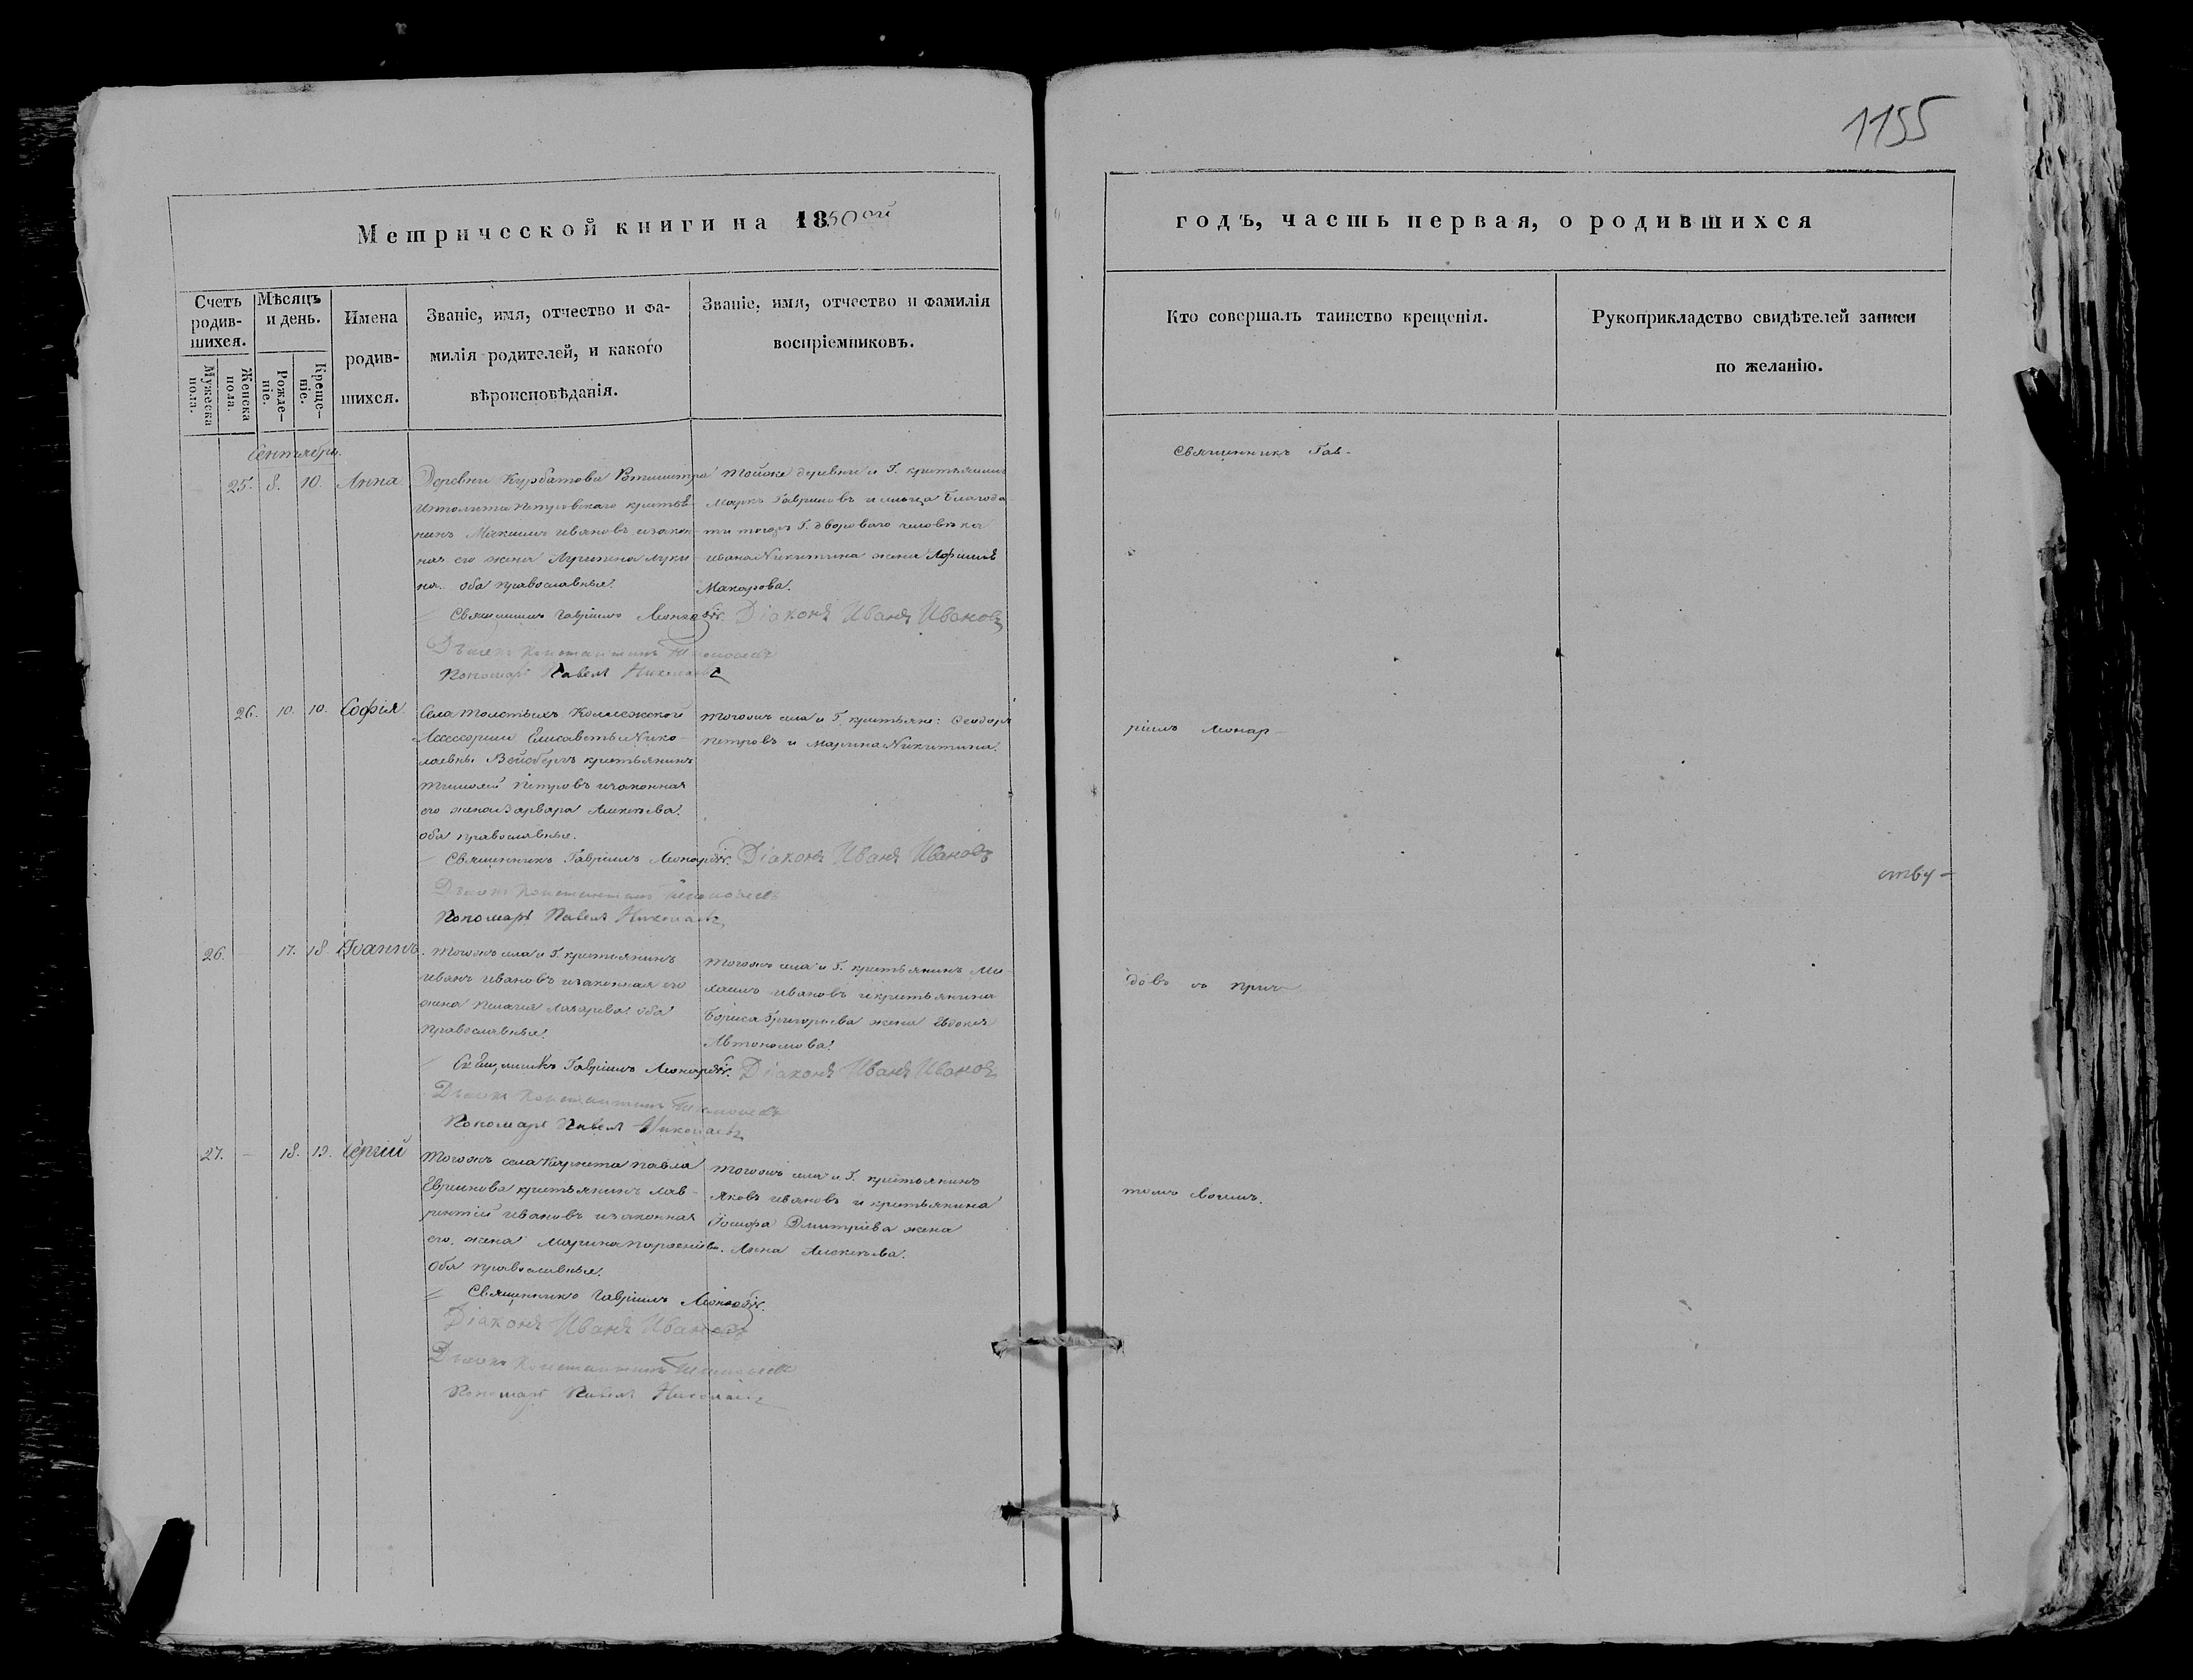 1155
Метрической книги на 1850ой
годъ, часть первая, о родившихся
Счетъ родив-шихся.
Мужеска пола.
Женска пола.
Мѣсяцъ и день.
Рожде-ніе.
Креще-ніе.
Имена
родив-
шихся.
Званіе, имя, отчество и фа-
милія родителей, и какого
вѣроисповѣданія.
Званіе, имя, отчество и фамилія
воспріемниковъ.
Кто совершалъ таинство крещенія.
Рукоприкладство свидѣтелей записи
по желанію.
Сентябрь.
25. 8. 10. Анна
Деревни Курбатова Ротмистра
Ипполита Петровскаго крестья-
нинъ Максимъ Ивановъ и закон-
ная его жена Луки-
на. Оба православные.
Тойже деревни и Г. крестьянинъ
Маркъ Гавриловъ и сельца Благода-
ти тогожъ Г. двороваго человѣка
Ивана Никитина жена Афимія
Макарова.
Священникъ Гавріилъ Леонардовъ. Діаконъ Иванъ Ивановъ
Дьячекъ Константинъ
Пономарь Павелъ Николаевъ
26. 10. 10. Софія
Села Толстыхъ Коллежской
Ассесорши Елисаветы Нико-
лаевны крестьянинъ
Тимофей Петровъ и законная
его жена Варвара Алексѣева.
оба православные.
Тогожъ села и Г. крестьяне: Феодоръ
Петровъ и Марина Никитина.
Священникъ Гавріилъ Леонардовъ. Діаконъ Иванъ Ивановъ
Дьячекъ Константинъ
Пономарь Павелъ Николаевъ
26. - 17. 18. Іоаннъ.
Тогожъ села и Г. крестьянинъ
Иванъ Ивановъ и законная его
жена Пелагия Лазарева. Оба
православные.
Тогожъ села и Г. крестьянинъ
Ивановъ и крестьянина
Бориса Григорьева жена Евдокия
Автономова.
Священникъ Гавріилъ Леонардовъ. Діаконъ Иванъ Ивановъ
Дьячекъ Константинъ
Пономарь Павелъ Николаевъ
27. - 18. 19. Сергій
Тогожъ села Корнета Павла
Евреинова крестьянинъ Лав-
рентій Ивановъ и законная
его жена Марина
Оба православные.
Тогожъ села и Г. крестьянинъ
Яковъ Ивановъ и крестьянина
Іосифа Дмитріева жена
Анна Алексѣева.
Священникъ Гавріилъ Леонардовъ.
Діаконъ Иванъ Ивановъ
Дьячекъ Константинъ
Пономарь Павелъ Николаевъ
Священникъ Гав-
ріилъ Леонар-
довъ съ прич-
томъ своимъ.
ству-